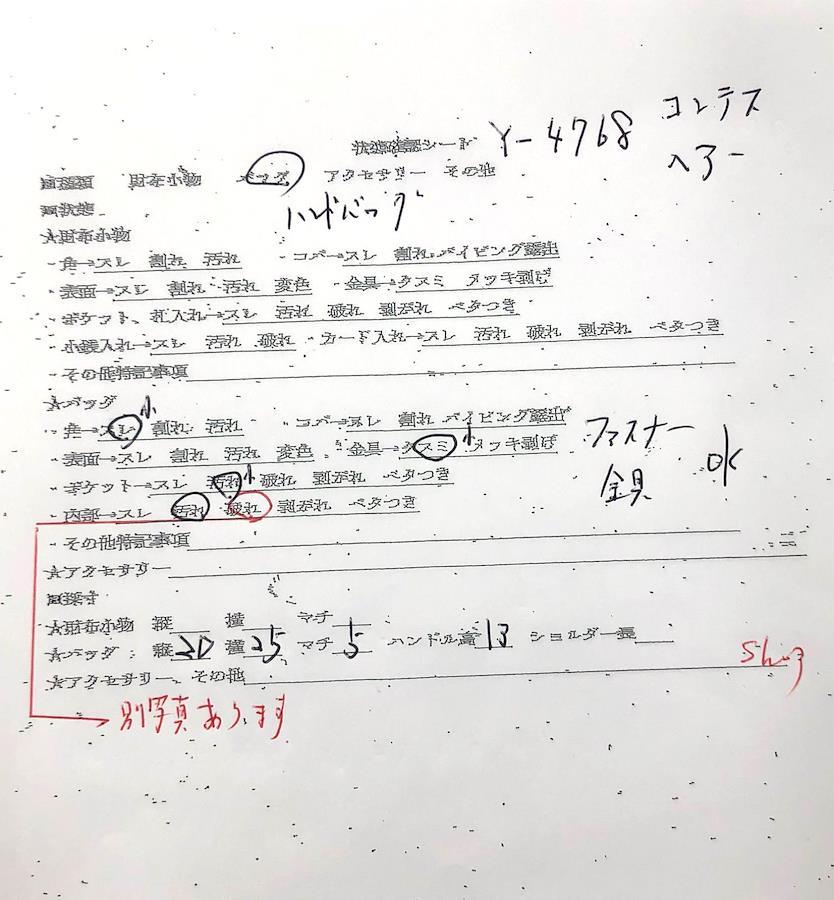 状態確認シート Y-4768 コンテス
へアー
■種類 財布小物 バッグ アクセサリー その他
■状態 ハンドバッグ
★財布小物
・角→スレ 割れ 汚れ ・コバ→スレ 割れ パイピング露出
・表面→スレ 割れ 汚れ 変色 ・金具→クスミ メッキ剥げ
・ポケット、札入れ→スレ 汚れ 破れ 剥がれ ベタつき
・小銭入れ→スレ 汚れ 破れ ・カード入れ→スレ 汚れ 破れ 剥がれ ベタつき
・その他特記事項
★バッグ
・角→スレ 小 割れ 汚れ ・コバ→スレ 割れ パイピング露出 ファスナー
・表面→スレ 割れ 汚れ 変色 ・金具→クスミ 小 メッキ剥げ
・ポケット→スレ 汚れ 小 破れ 剥がれ ベタつき 金具 OK
・内部→スレ 汚れ 破れ 剥がれ ベタつき
・その他特記事項
★アクセサリー
■採寸
★財布小物 縦 横 マチ
★バッグ: 縦 20 横 25 マチ 5 ハンドル高 13 ショルダー長
★アクセサリー、その他
別写真あります